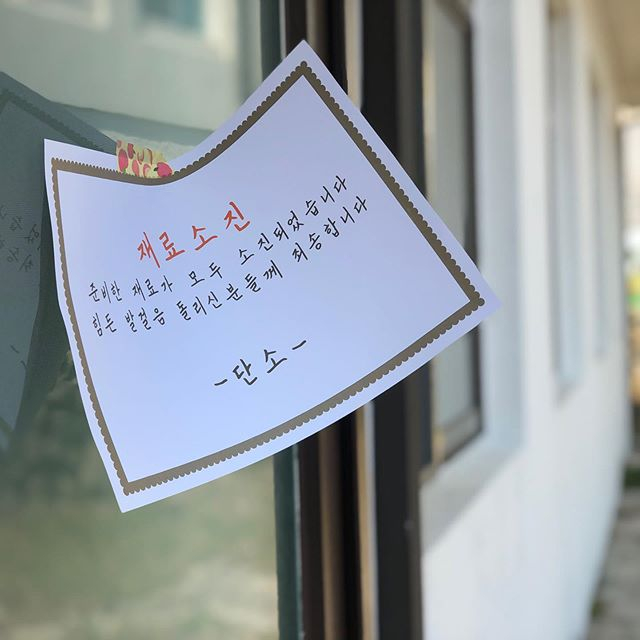 재료소진
준비한 재료가 모두 소진되었습니다
힘든 발걸음 돌리신분들께 죄송합니다
-단소-